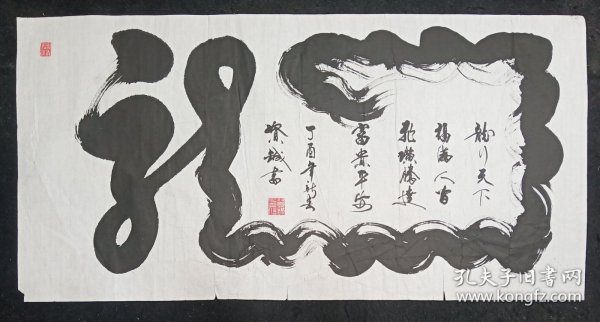 龍
龍行天下
福滿人間
騰達
富貴平安
丁酉年新春
書
孔夫子旧书网
www.kongfz.com